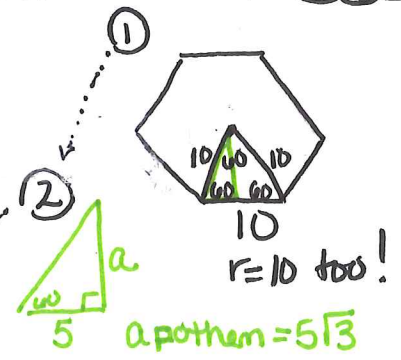 ①
10 60 10
60 60
10
r=10 too!
②
a
60
5
apothem = 5√3